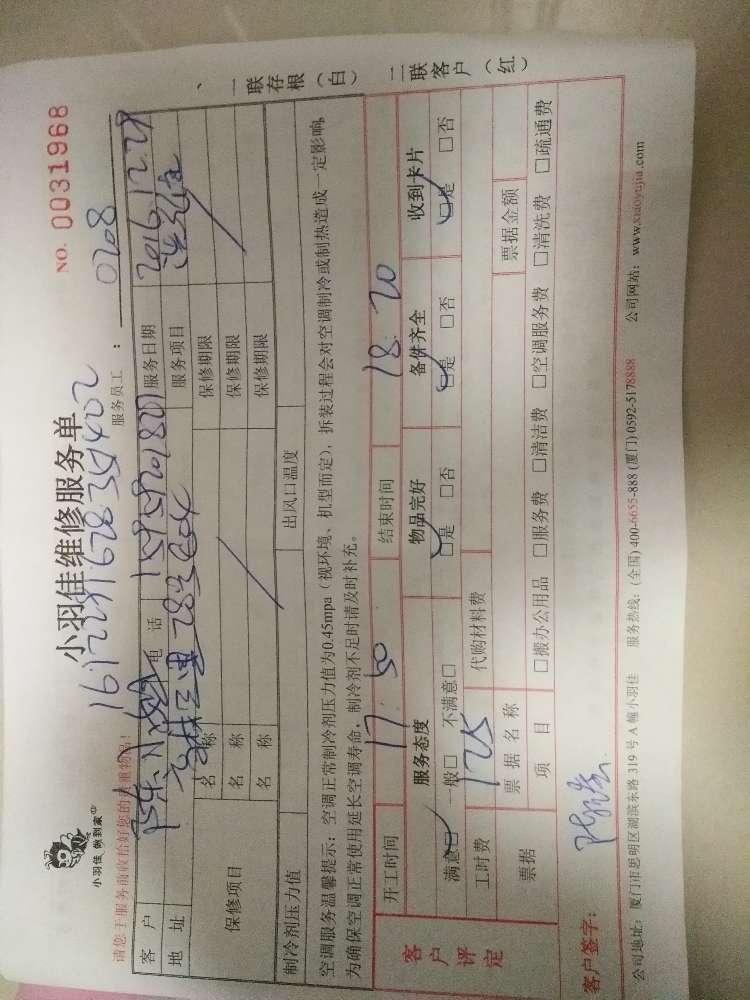 小羽佳 做到家
小羽佳维修服务单
NO. 0031968
请您于服务前收拾好您的贵重物品!
服务员工: 0208
客户 电话 服务日期 2016.12.29
地址 服务项目
保修项目 名称 保修期限
名称 保修期限
名称 保修期限
制冷剂压力值 出风口温度
空调服务温馨提示:空调正常制冷剂压力值为0.45mpa(视环境、机型而定),拆装过程会对空调制冷或制热造成一定影响,
为确保空调正常使用延长空调寿命,制冷剂不足时请及时补充。
开工时间 17:50 结束时间 18:20
客户评定
服务态度 物品完好 备件齐全 收到卡片
满意□ 一般□ 不满意□ □是 □否 □是 □否 □是 □否
工时费 125 代购材料费
票据 票据名称 票据金额
项目 □搬办公用品 □服务费 □清洁费 □空调服务费 □清洗费 □疏通费
客户签字:
公司地址:厦门市思明区湖滨东路 319 号 A 幢小羽佳 服务热线:(全国) 400-6655-888 (厦门) 0592-5178888 公司网站:www.xiaoyujia.com
一联存根(白) 二联客户(红)